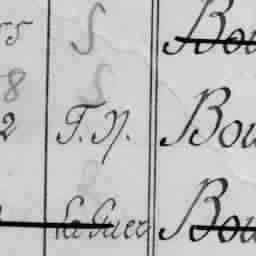 55 S Bou
8 S
2 T. N. Bou
La Guer Bou